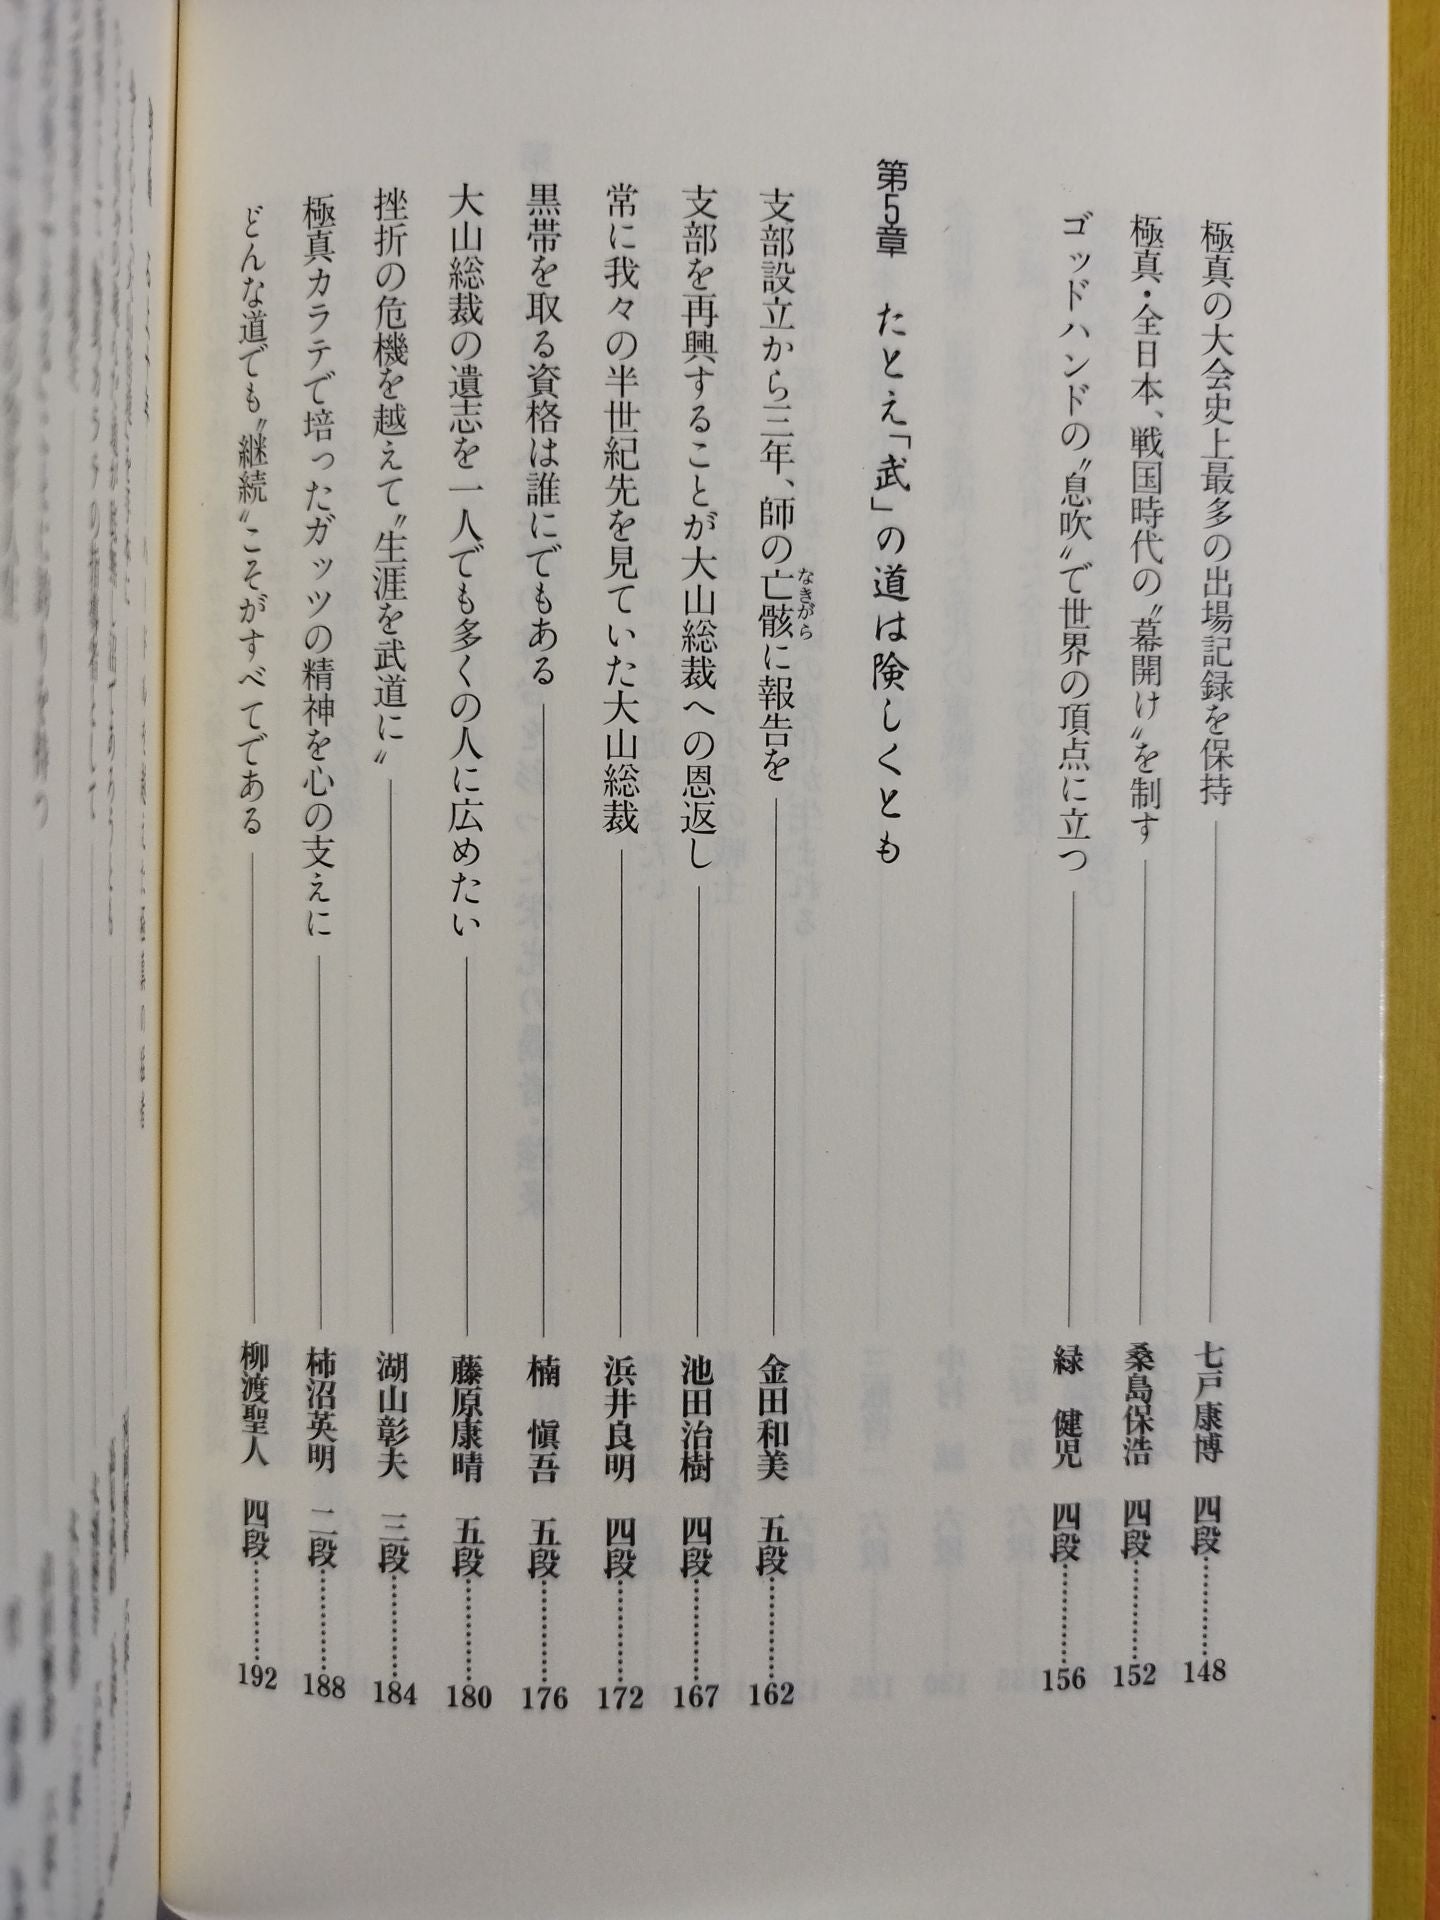 極真の大会史上最多の出場記録を保持 七戸康博 四段………148
極真・全日本、戦国時代の〝幕開け〟を制す 桑島保浩 四段………152
ゴッドハンドの〝息吹〟で世界の頂点に立つ 緑 健児 四段………156
第5章 たとえ「武」の道は険しくとも
支部設立から三年、師の亡骸に報告を 金田和美 五段………162
なきがら
支部を再興することが大山総裁への恩返し 池田治樹 四段………167
常に我々の半世紀先を見ていた大山総裁 浜井良明 四段………172
黒帯を取る資格は誰にでもある 楠 愼吾 五段………176
大山総裁の遺志を一人でも多くの人に広めたい 藤原康晴 五段………180
挫折の危機を越えて〝生涯を武道に〟 湖山彰夫 三段………184
極真カラテで培ったガッツの精神を心の支えに 柿沼英明 二段………188
どんな道でも〝継続〟こそがすべてである 柳渡聖人 四段………192